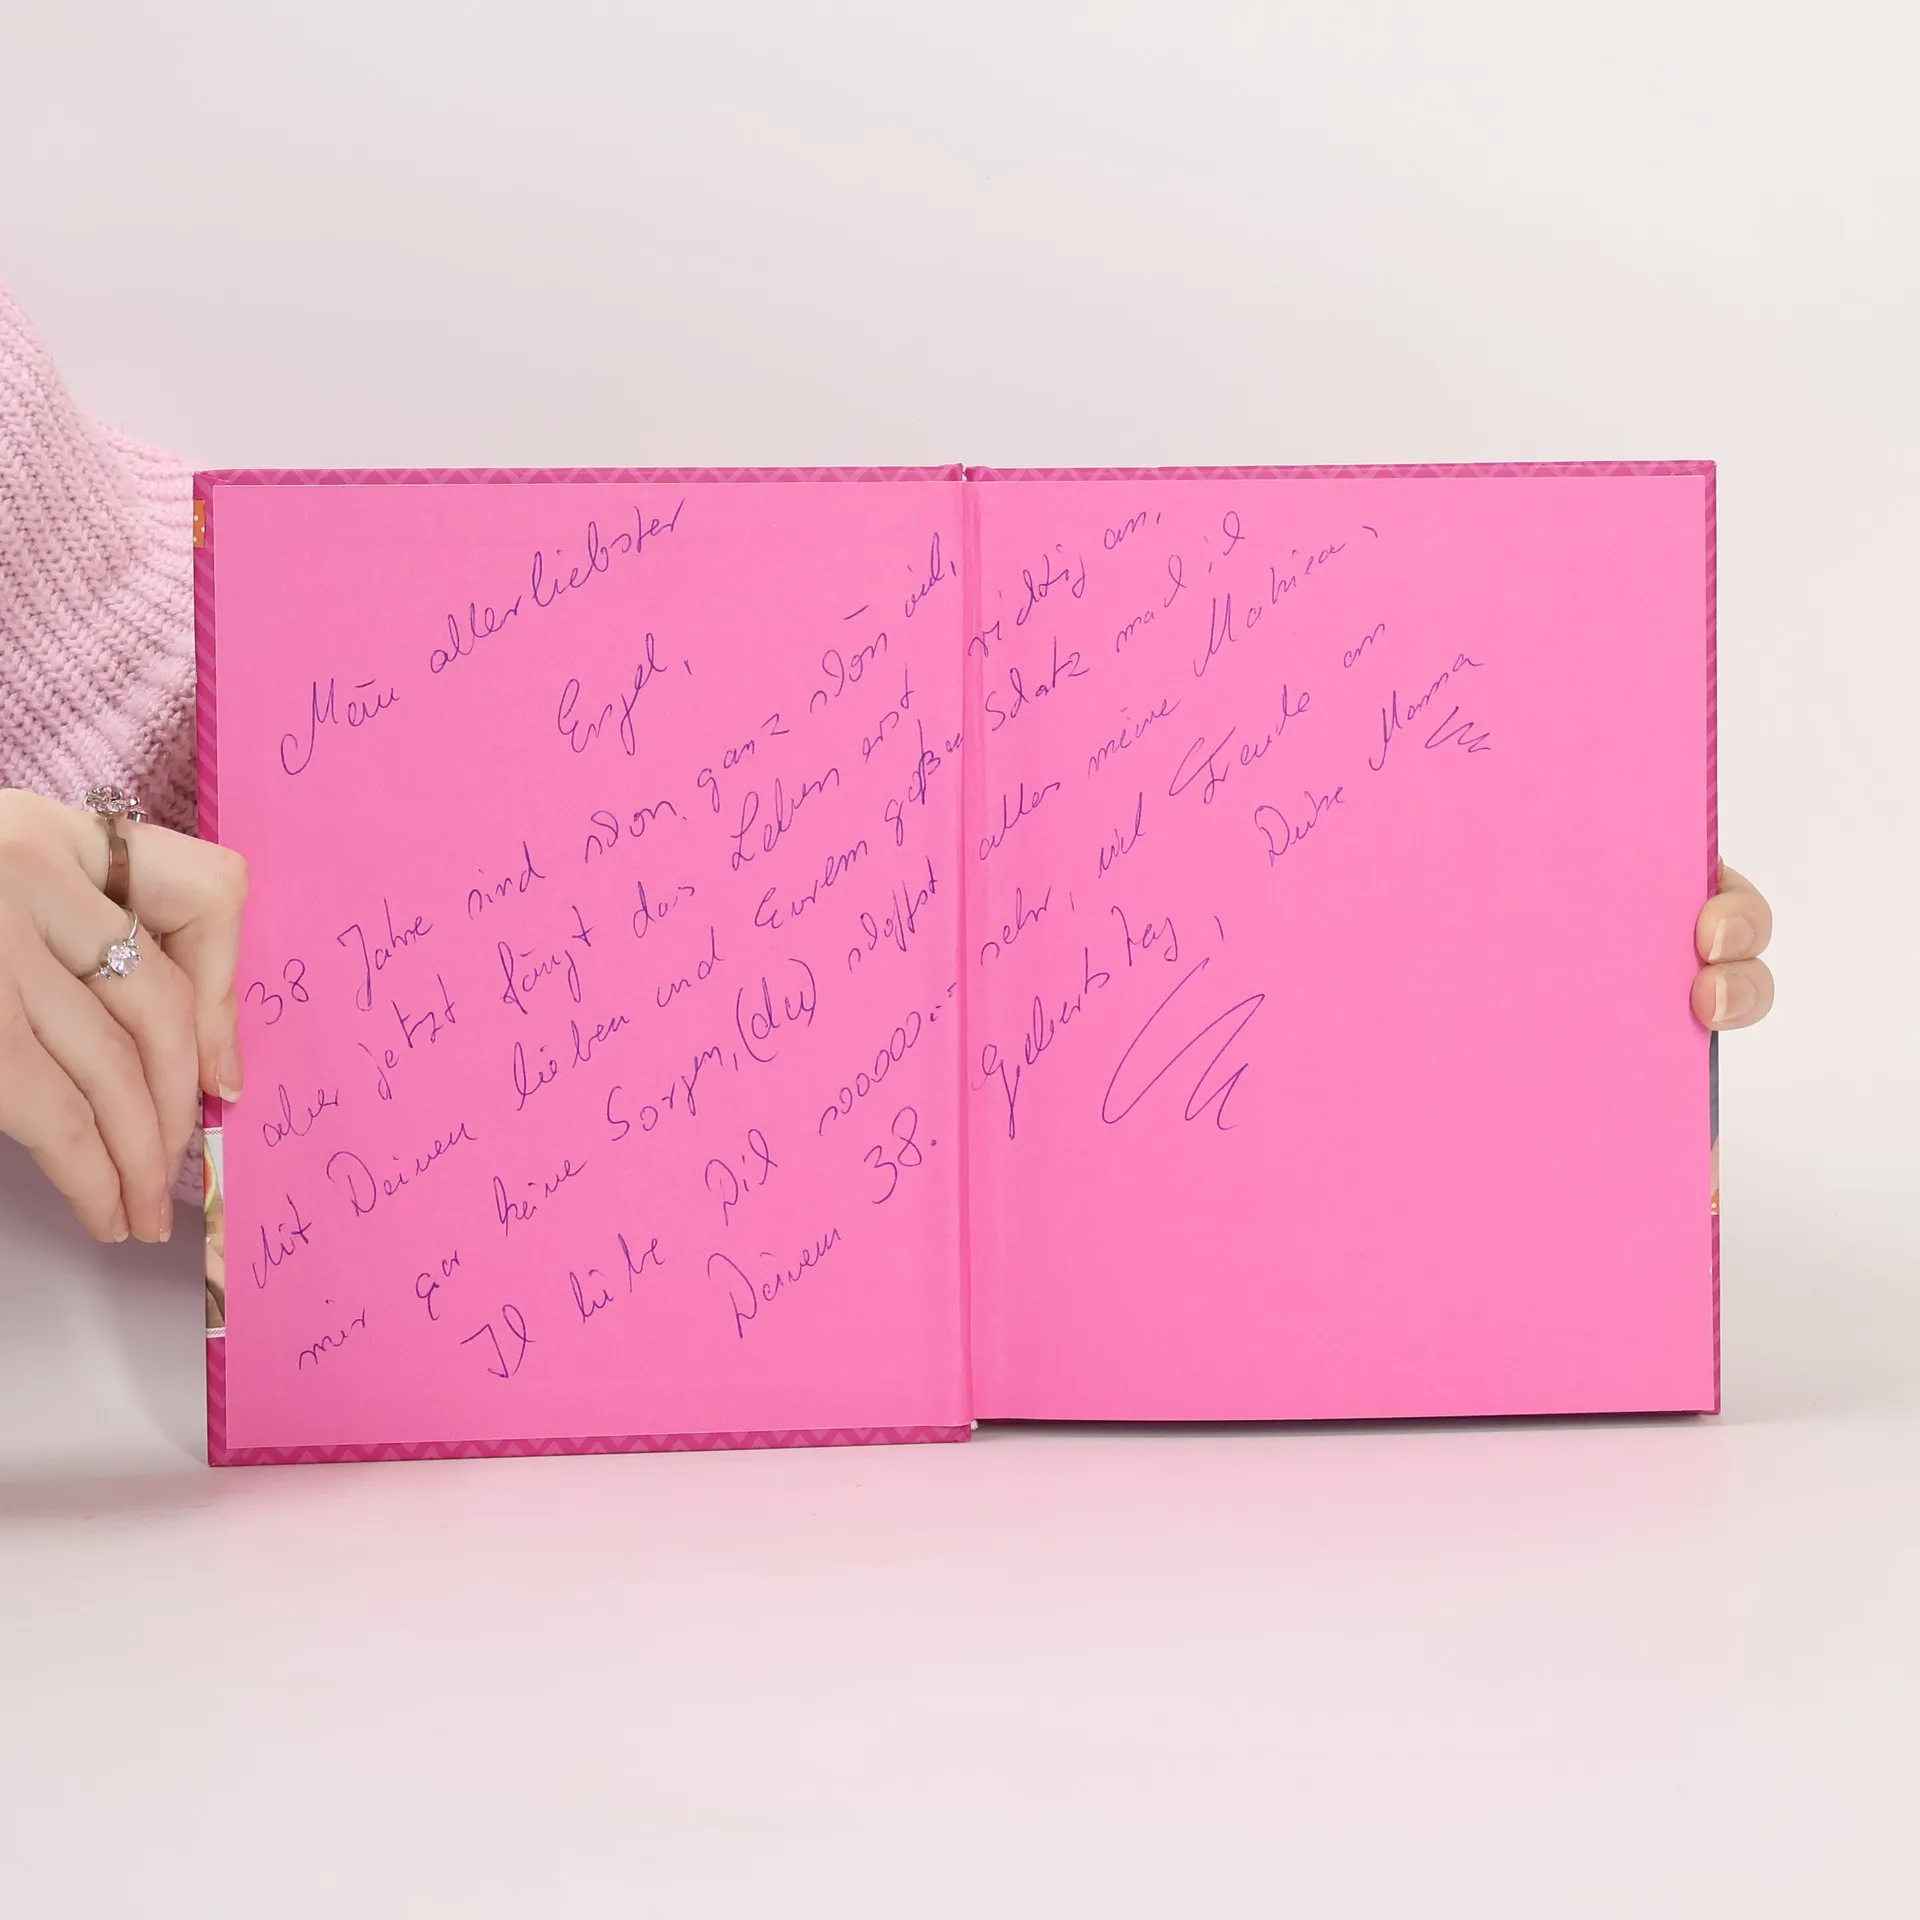 Mein allerliebster
Engel,
38 Jahre sind schon ganz schön viel,
aber jetzt fängt das Leben erst richtig an.
Mit Deinen lieben und Eurem großen Schatz mach ich
mir gar keine Sorgen, (du) schaffst alles meine
Ich liebe Dich soooooo... sehr, viel Freude an
Deinem 38. Geburtstag,
Deine Mama